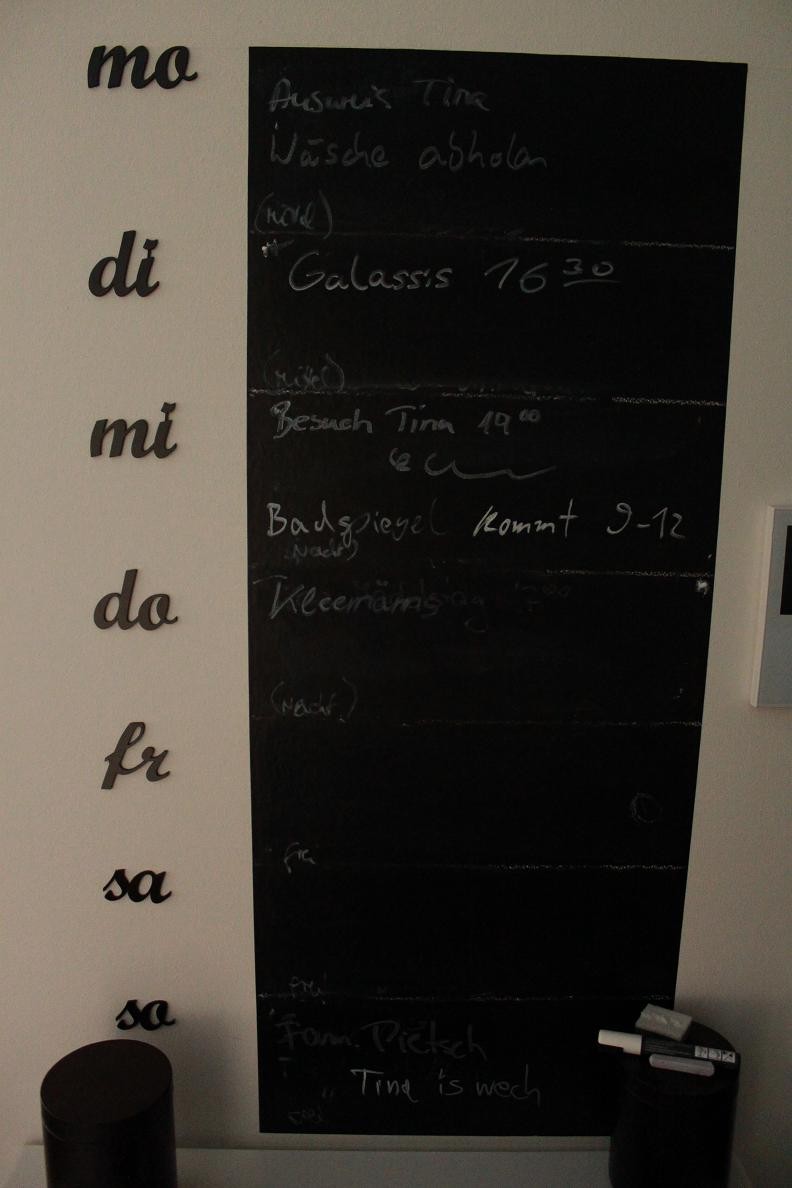 mo
Ausweis Tina
Wäsche abholen
di
Galassis 16 30
mi
Besuch Tina 19 00
Badspiegel kommt 9-12
(Nacht)
do
(Nacht)
fr
frei
sa
frei
so
Fam. Pietsch
Tina is wech